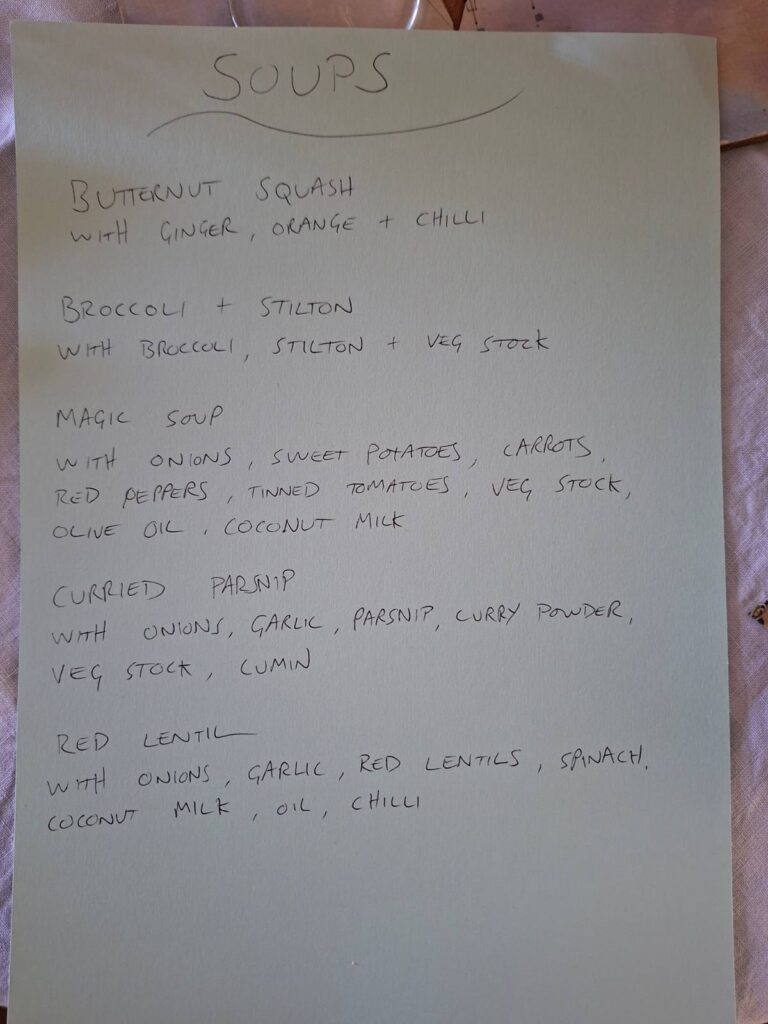 SOUPS
BUTTERNUT SQUASH
WITH GINGER, ORANGE + CHILLI
BROCCOLI + STILTON
WITH BROCCOLI, STILTON + VEG STOCK
MAGIC SOUP
WITH ONIONS, SWEET POTATOES, CARROTS,
RED PEPPERS, TINNED TOMATOES, VEG STOCK,
OLIVE OIL, COCONUT MILK
CURRIED PARSNIP
WITH ONIONS, GARLIC, PARSNIP, CURRY POWDER,
VEG STOCK, CUMIN
RED LENTIL
WITH ONIONS, GARLIC, RED LENTILS, SPINACH,
COCONUT MILK, OIL, CHILLI